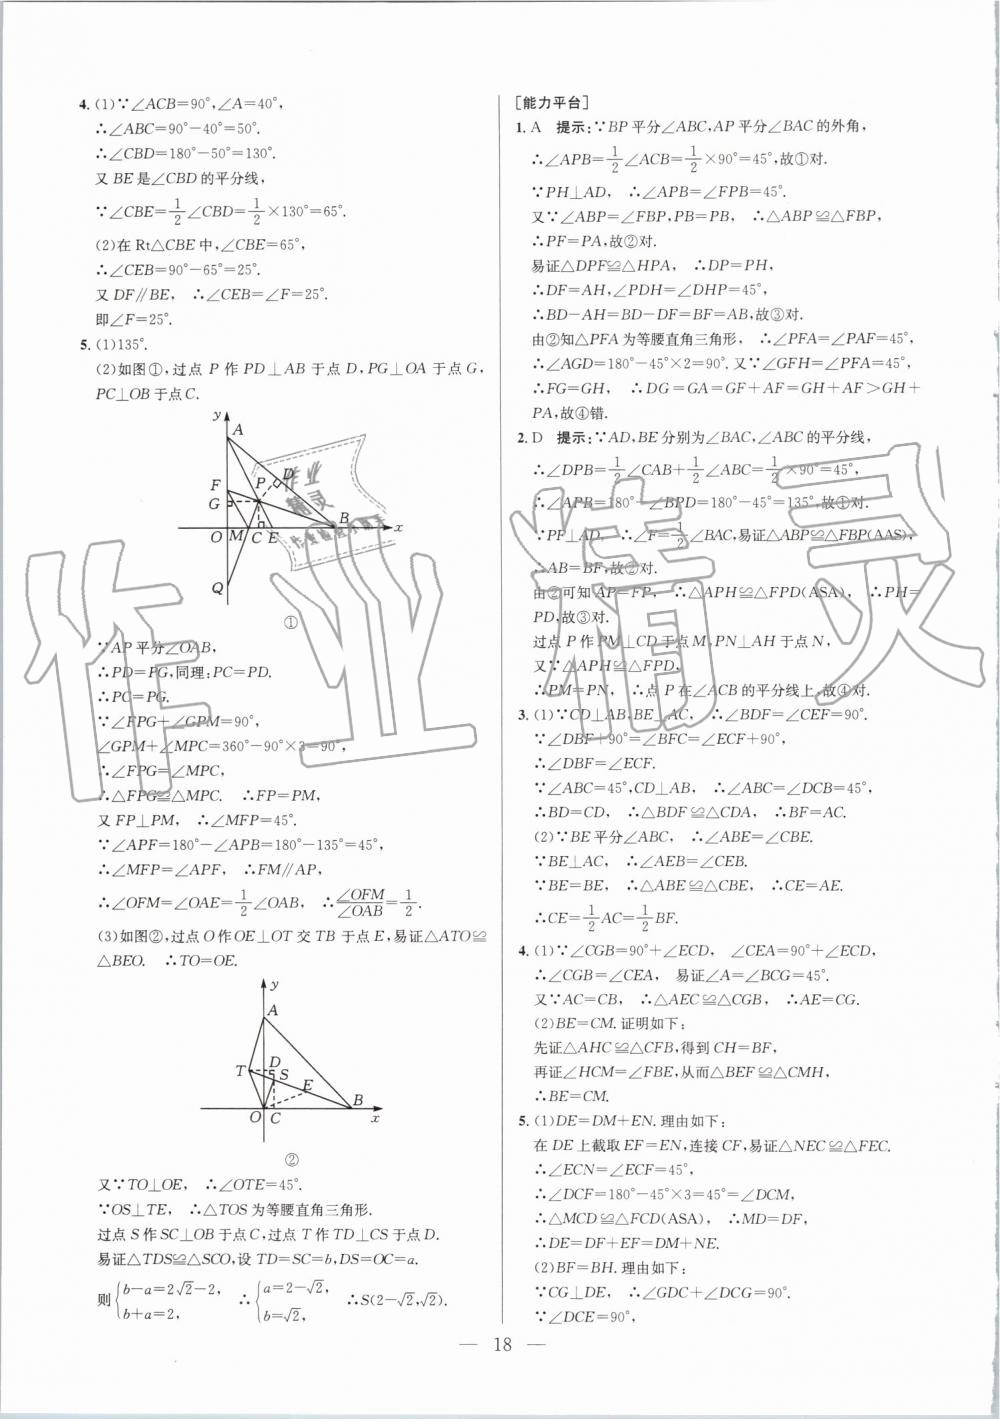 4. (1)∵∠ACB=90°,∠A=40°,
∴∠ABC=90°-40°=50°.
∴∠CBD=180°-50°=130°.
又 BE是∠CBD的平分线,
∵∠CBE=1/2∠CBD=1/2×130°=65°.
(2)在 Rt△CBE 中,∠CBE=65°,
∴∠CEB=90°-65°=25°.
又 DF∥BE, ∴∠CEB=∠F=25°.
即∠F=25°.
5. (1)135°.
(2)如图①,过点 P 作 PD⊥AB 于点 D,PG⊥OA 于点 G,
PC⊥OB于点C.
y
A
F
D
P
G
B
x
O M C E
Q
①
∵AP平分∠OAB,
∴PD=PG,同理:PC=PD.
∴PC=PG.
∵∠FPG+∠GPM=90°,
∠GPM+∠MPC=360°-90°×3=90°,
∴∠FPG=∠MPC,
∴△FPG≌△MPC. ∴FP=PM,
又 FP⊥PM, ∴∠MFP=45°.
∵∠APF=180°-∠APB=180°-135°=45°,
∴∠MFP=∠APF, ∴FM∥AP,
∴∠OFM=∠OAE=1/2∠OAB, ∴∠OFM/∠OAB=1/2.
(3)如图②,过点O作OE⊥OT 交 TB 于点E,易证△ATO≌
△BEO. ∴TO=OE.
y
A
T D
S
E
B
O C
x
②
又∵TO⊥OE, ∴∠OTE=45°.
∵OS⊥TE, ∴△TOS为等腰直角三角形.
过点 S作SC⊥OB于点C,过点 T作TD⊥CS于点D.
易证△TDS≌△SCO,设 TD=SC=b,DS=OC=a.
则{b-a=2√2-2, b+a=2, ∴{a=2-√2, b=√2, ∴S(2-√2,√2).
[能力平台]
1. A 提示:∵BP平分∠ABC,AP平分∠BAC的外角,
∴∠APB=1/2∠ACB=1/2×90°=45°,故①对.
∵PH⊥AD, ∴∠APB=∠FPB=45°.
又∵∠ABP=∠FBP,PB=PB, ∴△ABP≌△FBP,
∴PF=PA,故②对.
易证△DPF≌△HPA, ∴DP=PH,
∴DF=AH,∠PDH=∠DHP=45°,
∴BD-AH=BD-DF=BF=AB,故③对.
由②知△PFA为等腰直角三角形, ∴∠PFA=∠PAF=45°,
∴∠AGD=180°-45°×2=90°.又∵∠GFH=∠PFA=45°,
∴FG=GH, ∴DG=GA=GF+AF=GH+AF>GH+
PA,故④错.
2. D 提示:∵AD,BE分别为∠BAC,∠ABC的平分线,
∴∠DPB=1/2∠CAB+1/2∠ABC=1/2×90°=45°,
∴∠APB=180°-∠BPD=180°-45°=135°,故①对.
∵PF⊥AD, ∴∠F=1/2∠BAC,易证△ABP≌△FBP(AAS),
∴AB=BF,故②对.
由②可知AP=FP, ∴△APH≌△FPD(ASA), ∴PH=
PD,故③对.
过点 P作PM⊥CD于点M,PN⊥AH于点N,
又∵△APH≌△FPD,
∴PM=PN, ∴点 P在∠ACB的平分线上,故④对.
3. (1)∵CD⊥AB,BE⊥AC, ∴∠BDF=∠CEF=90°.
∵∠DBF+90°=∠BFC=∠ECF+90°,
∴∠DBF=∠ECF.
∵∠ABC=45°,CD⊥AB, ∴∠ABC=∠DCB=45°,
∴BD=CD, ∴△BDF≌△CDA, ∴BF=AC.
(2)∵BE平分∠ABC, ∴∠ABE=∠CBE.
∵BE⊥AC, ∴∠AEB=∠CEB.
∵BE=BE, ∴△ABE≌△CBE, ∴CE=AE.
∴CE=1/2AC=1/2BF.
4. (1)∵∠CGB=90°+∠ECD, ∠CEA=90°+∠ECD,
∴∠CGB=∠CEA, 易证∠A=∠BCG=45°.
又∵AC=CB, ∴△AEC≌△CGB, ∴AE=CG.
(2)BE=CM.证明如下:
先证△AHC≌△CFB,得到CH=BF,
再证∠HCM=∠FBE,从而△BEF≌△CMH,
∴BE=CM.
5. (1)DE=DM+EN.理由如下:
在 DE上截取EF=EN,连接CF,易证△NEC≌△FEC.
∴∠ECN=∠ECF=45°,
∴∠DCF=180°-45°×3=45°=∠DCM,
∴△MCD≌△FCD(ASA), ∴MD=DF,
∴DE=DF+EF=DM+NE.
(2)BF=BH.理由如下:
∵CG⊥DE, ∴∠GDC+∠DCG=90°.
∵∠DCE=90°,
— 18 —
作业精灵